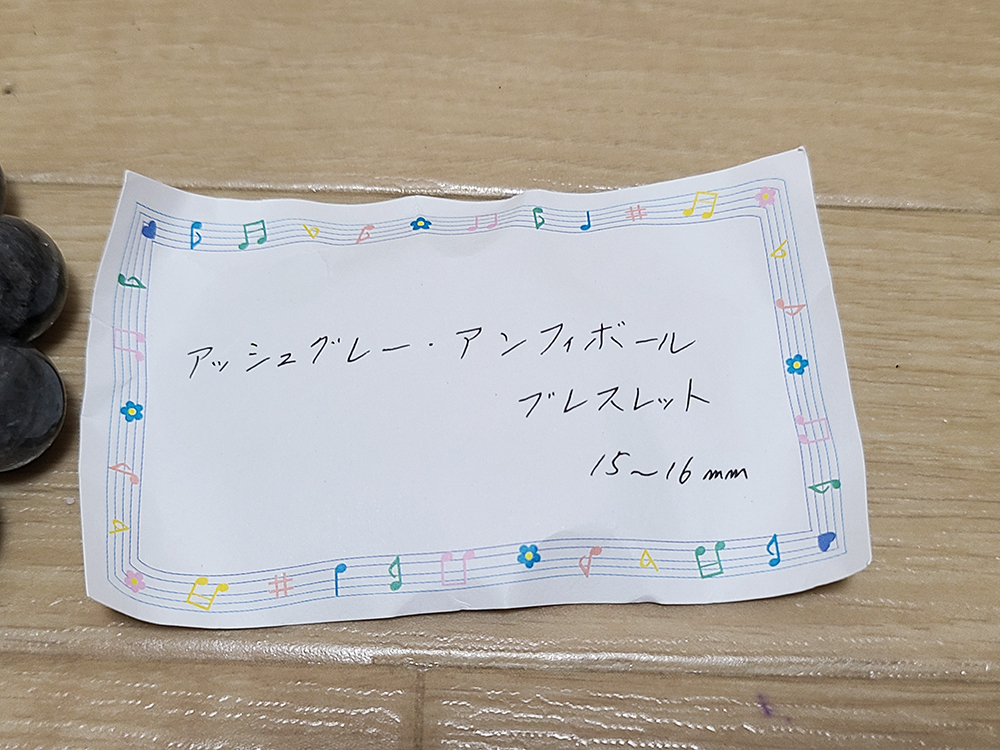 アッシュグレー・アンフィボール
ブレスレット
15～16mm